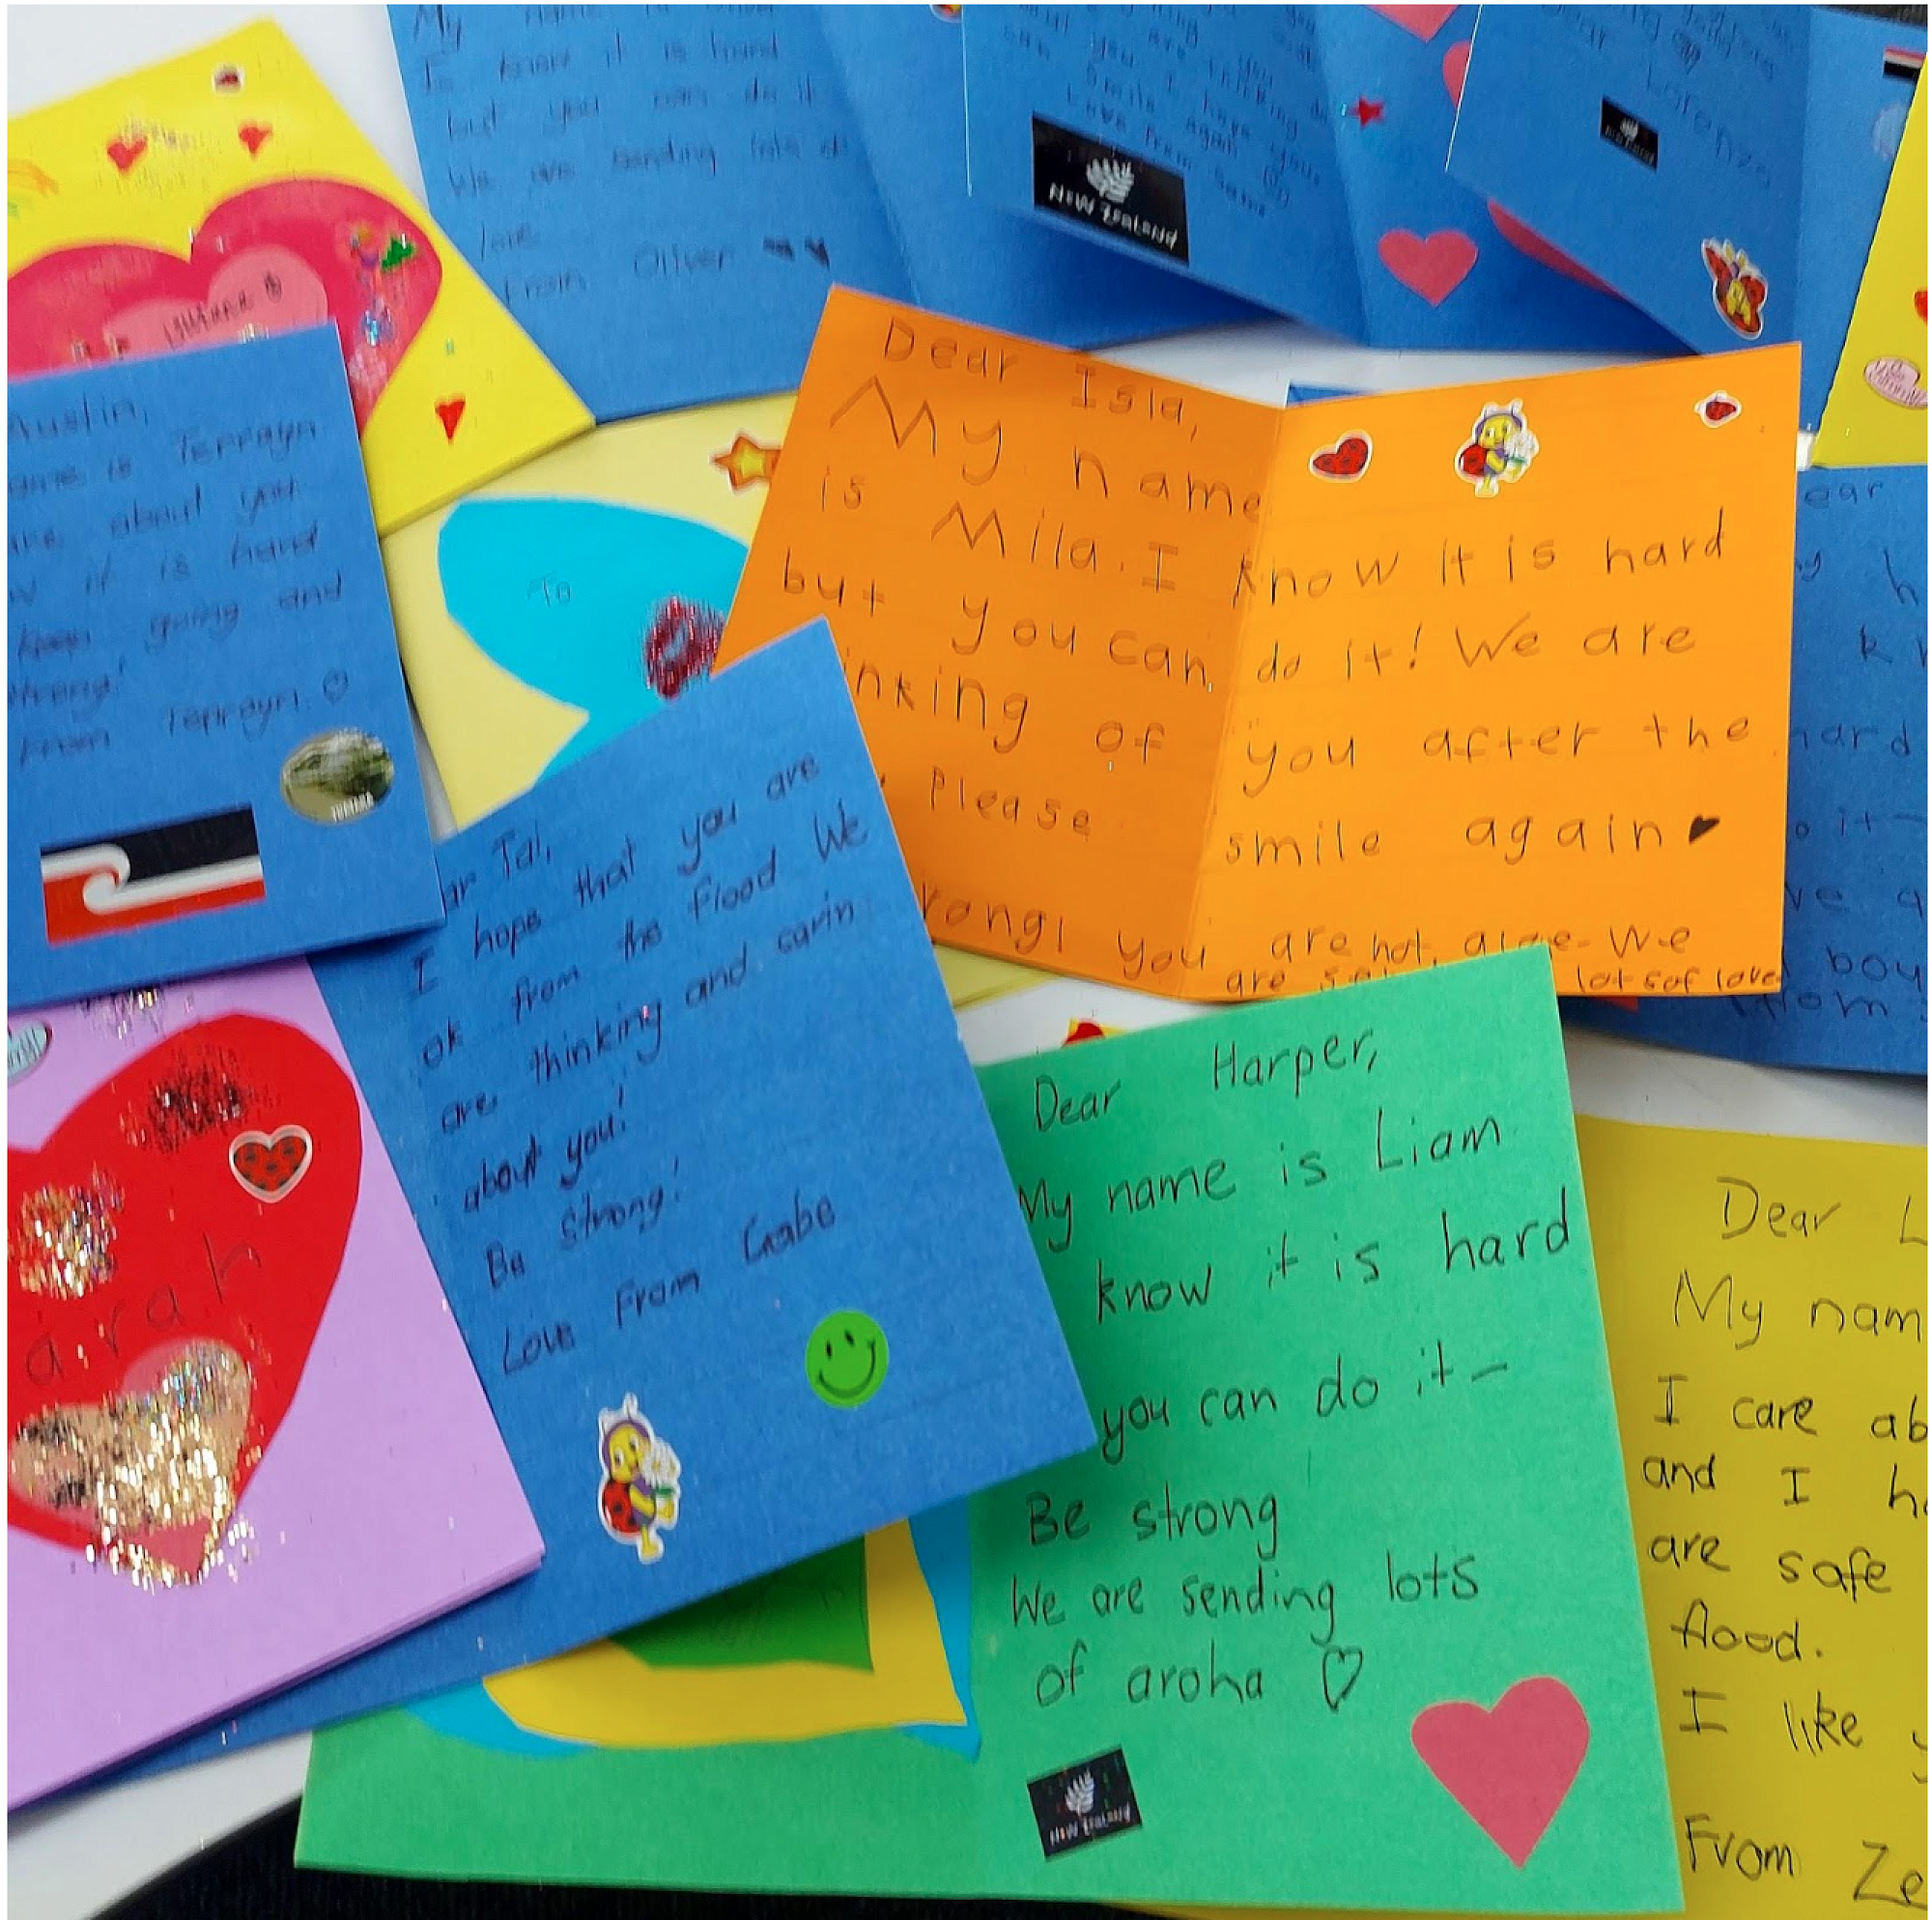 My name is
I know it is hard
but you can do it
We are sending lots of
love
From Oliver
you
are thinking
you I hope you
can smile again
Love from
NEW ZEALAND
Lorenzo
Austin,
is Terrayn
are about you
it is hard
keep going and
strong!
From Terrayn
TUATARA
To
Dear Isla,
My name
is Mila. I know it is hard
but you can do it! We are
inking of you after the
Please smile again
rong! you are not alone. We
are lots of love
ear
h
k
hard
o it -
ve a
boy
from
ar Tai,
I hope that you are
ok from the flood We
are thinking and carin
about you!
Be strong!
Love From Gabe
arah
Dear Harper,
My name is Liam
know it is hard
you can do it -
Be strong
We are sending lots
of aroha
NEW ZEALAND
Dear L
My nam
I care ab
and I h
are safe
flood.
I like y
From Ze